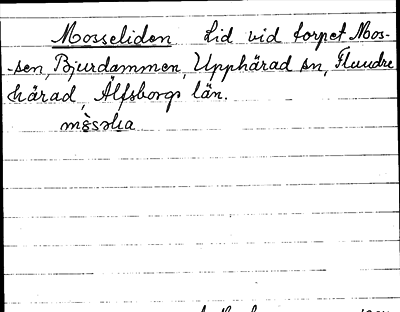 Mosseliden Lid vid torpet Mos-
-sen, Bjurdammen, Upphärad sn, Flundre
härad, Älfsborgs län.